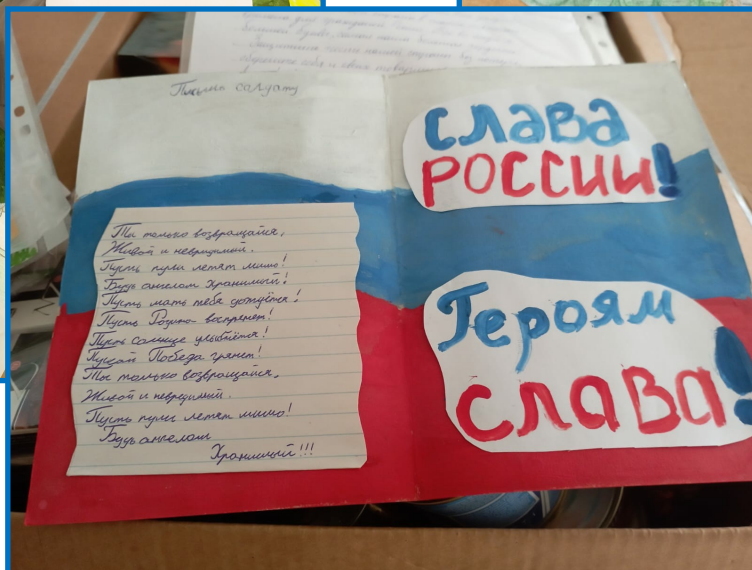 Письмо солдату
Ты только возвращайся,
Живой и невредимый.
Пусть пули летят мимо!
Будь ангелом хранимый!
Пусть мать тебя дождётся!
Пусть Родина воспрянет!
Пусть солнце улыбнётся!
Пускай Победа грянет!
Ты только возвращайся,
Живой и невредимый.
Пусть пули летят мимо!
Будь ангелом
Хранимый!!!
СЛАВА
РОССИИ!
Героям
СЛАВА!